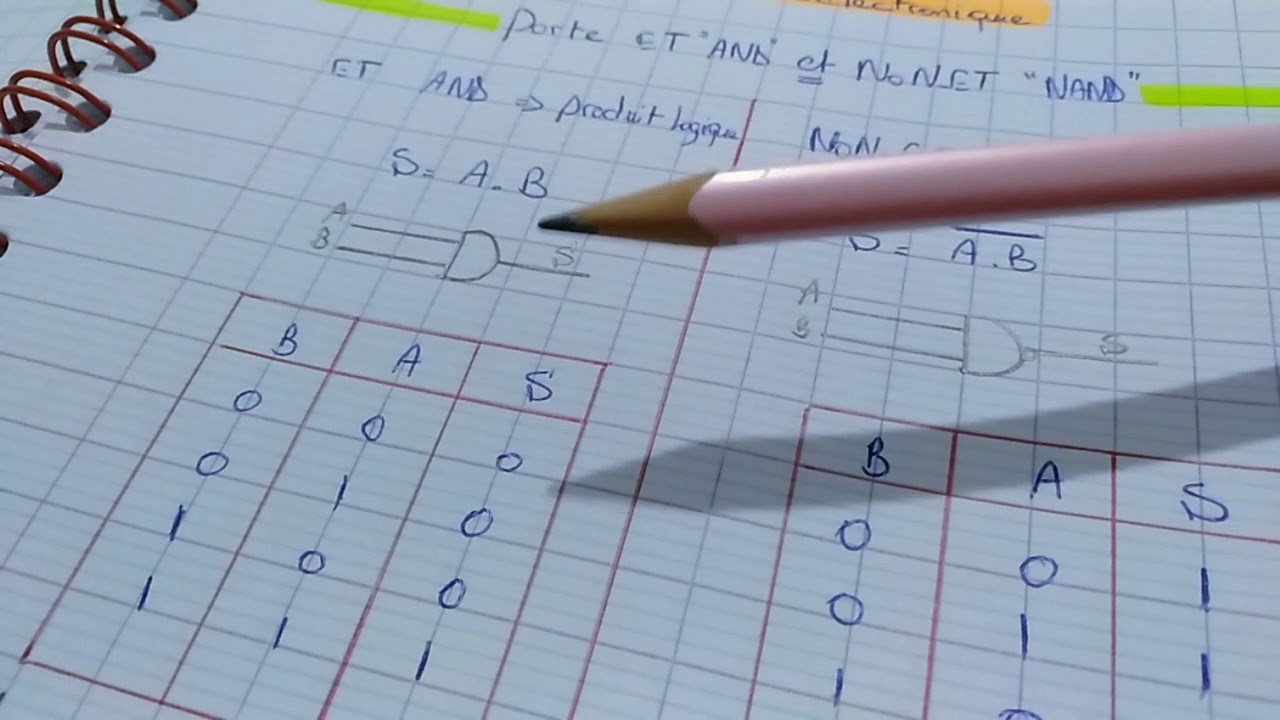 électronique
Porte ET "AND" et NON_ET "NAND"
ET AND => produit logique
S = A . B
A
B
S
B A S
0 0 0
0 1 0
1 0 0
1 1 1
NON
S = A . B
A
B
S
B A S
0 0 1
0 1 1
1 0